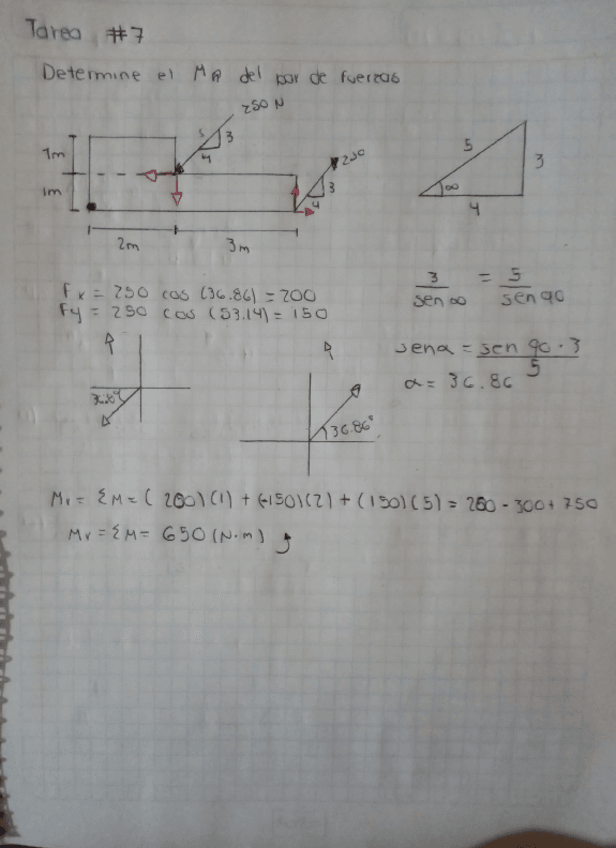 Tarea #7
Determine el MR del par de fuerzas
250 N
5 3
4
1m
1m
250
3
4
2m 3m
5 3
∞
4
Fx = 250 cos (36.86) = 200
Fy = 250 cos (53.14) = 150
3/sen ∞ = 5/sen 90
senα = sen 90 · 3 / 5
α = 36.86
R
36.8°
R
36.86°
Mr = ΣM = (200)(1) + (-150)(2) + (150)(5) = 200 - 300 + 750
Mr = ΣM = 650 (N·m)